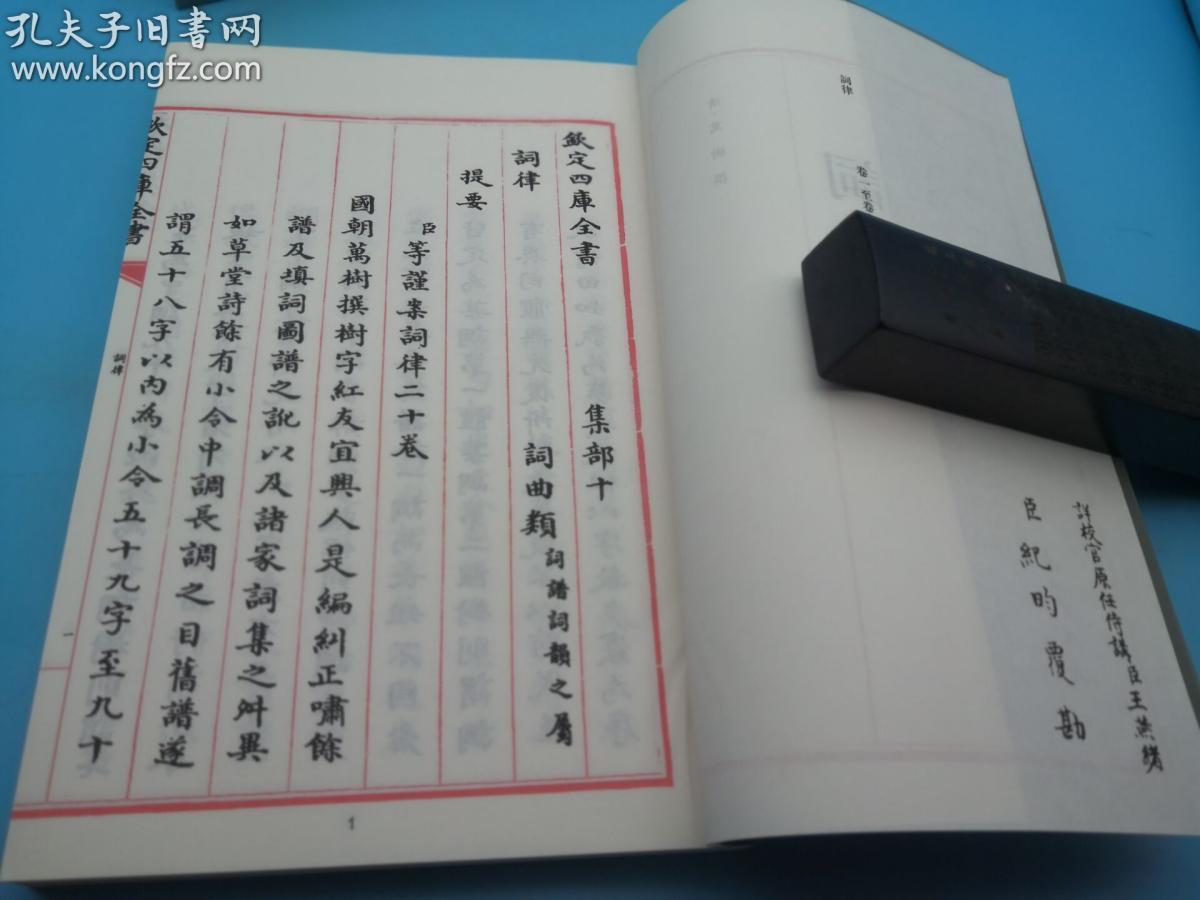 孔夫子旧书网
www.kongfz.com
詞律
卷一至卷
詳校官原任侍講臣王燕緒
臣紀昀覆勘
欽定四庫全書　集部十
詞律　詞曲類詞譜詞韻之屬
提要
臣等謹案詞律二十卷
國朝萬樹撰樹字紅友宜興人是編糾正嘯餘
譜及填詞圖譜之訛以及諸家詞集之舛異
如草堂詩餘有小令中調長調之目舊譜遂
謂五十八字以內為小令五十九字至九十
欽定四庫全書
詞律
一
1